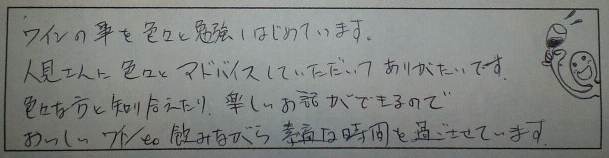 ワインの事を色々と勉強しはじめています。
人見さんに色々とアドバイスしていただいてありがたいです。
色々な方と知り合えたり、楽しいお話ができるので
おいしいワインを飲みながら素敵な時間を過ごさせています。